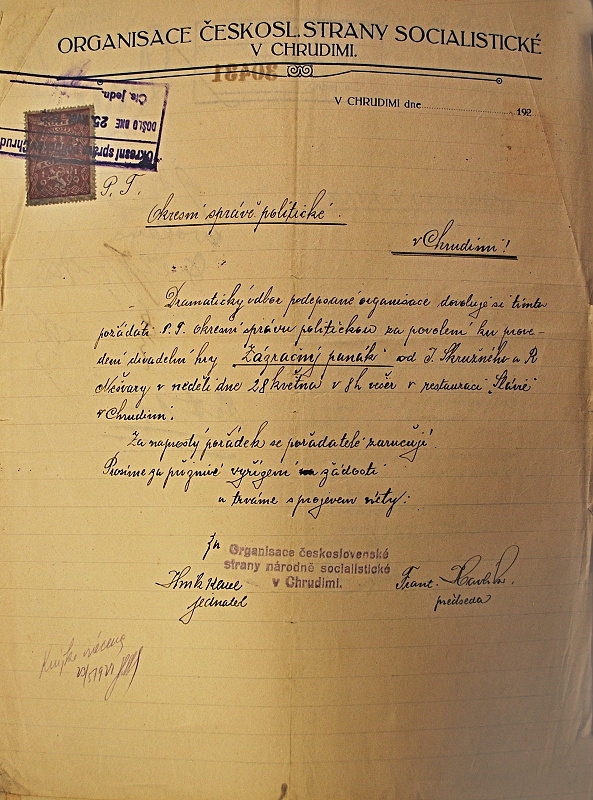 ORGANISACE ČESKOSL. STRANY SOCIALISTICKÉ
V CHRUDIMI.
30431
V CHRUDIMI dne 192
Čís. jedn.
DOŠLO DNE 25
Okresní správa Chrud
P. T.
Okresní správě politické.
v Chrudimi!
Dramatický odbor podepsané organisace dovoluje si tímto
požádati P. T. Okresní správu politickou za povolení ku prove-
dení divadelní hry "Zázračný panák" od J. Skružného a R
Nešvary v neděli dne 28 května v 8h večer v restauraci "Slávie"
v Chrudimi.
Za naprostý pořádek se pořadatelé zaručují.
Prosíme za příznivé vyřízení žádosti
a trváme s projevem úcty:
Za
Organisace československé
strany národně socialistické
v Chrudimi.
Karel
jednatel
Frant. Havlík.
předseda